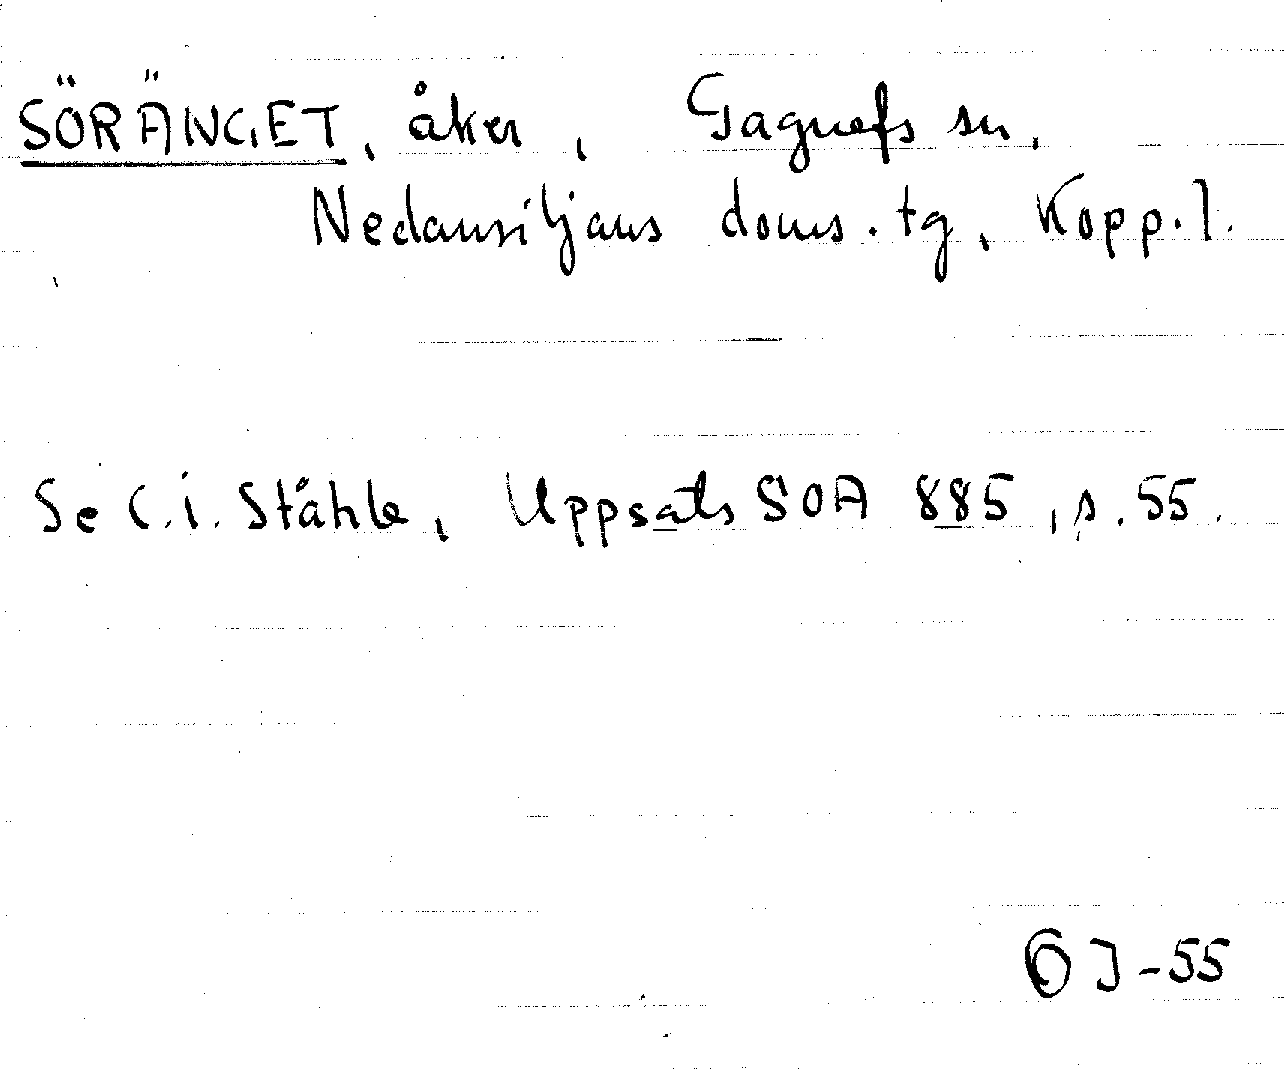 SÖRÄNGET, åker, Gagnefs sn,
Nedansiljans doms. tg, Kopp. l.
Se C.I. Ståhle, Uppsats SOA 885, s. 55.
OJ-55